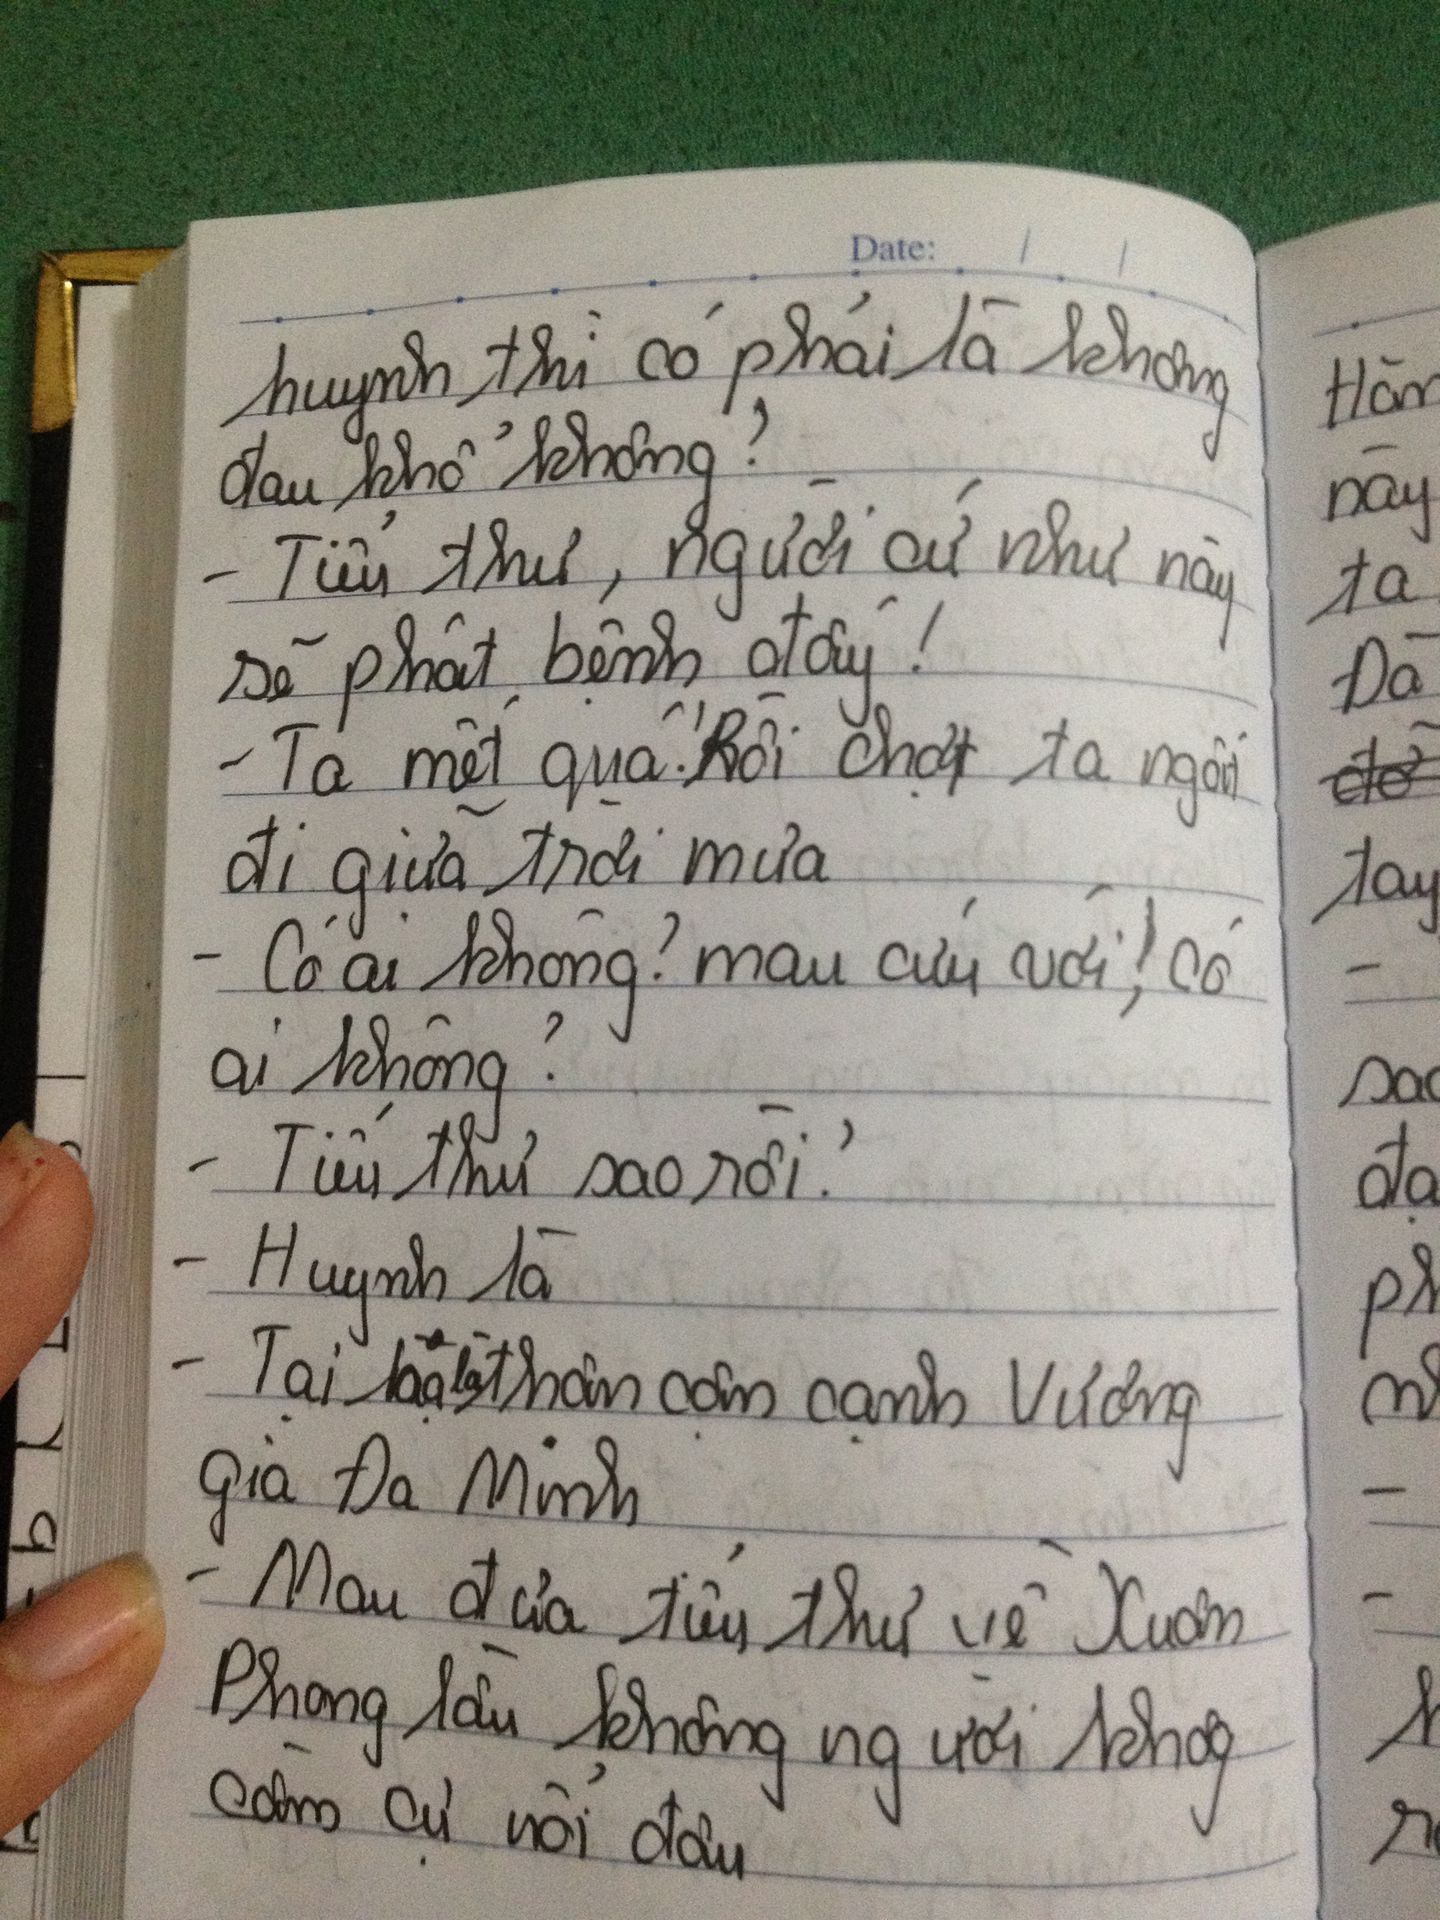 Date: / /
huynh thì có phải là không
đau khổ không?
- Tiểu thư, người cứ như này
sẽ phát bệnh đấy!
- Ta mệt quá! Rồi chợt ta ngất
đi giữa trời mưa
- Có ai không? mau cứu với! Có
ai không?
- Tiểu thư sao rồi?
- Huynh là
- Tại hạ là thân cận cạnh Vương
gia Đa Minh
- Mau đưa tiểu thư về Xuân
Phong lầu không người khog
cầm cự nổi đâu
Hàn
này
ta
Đã
tay
-
sao
đạ
ph
-
-